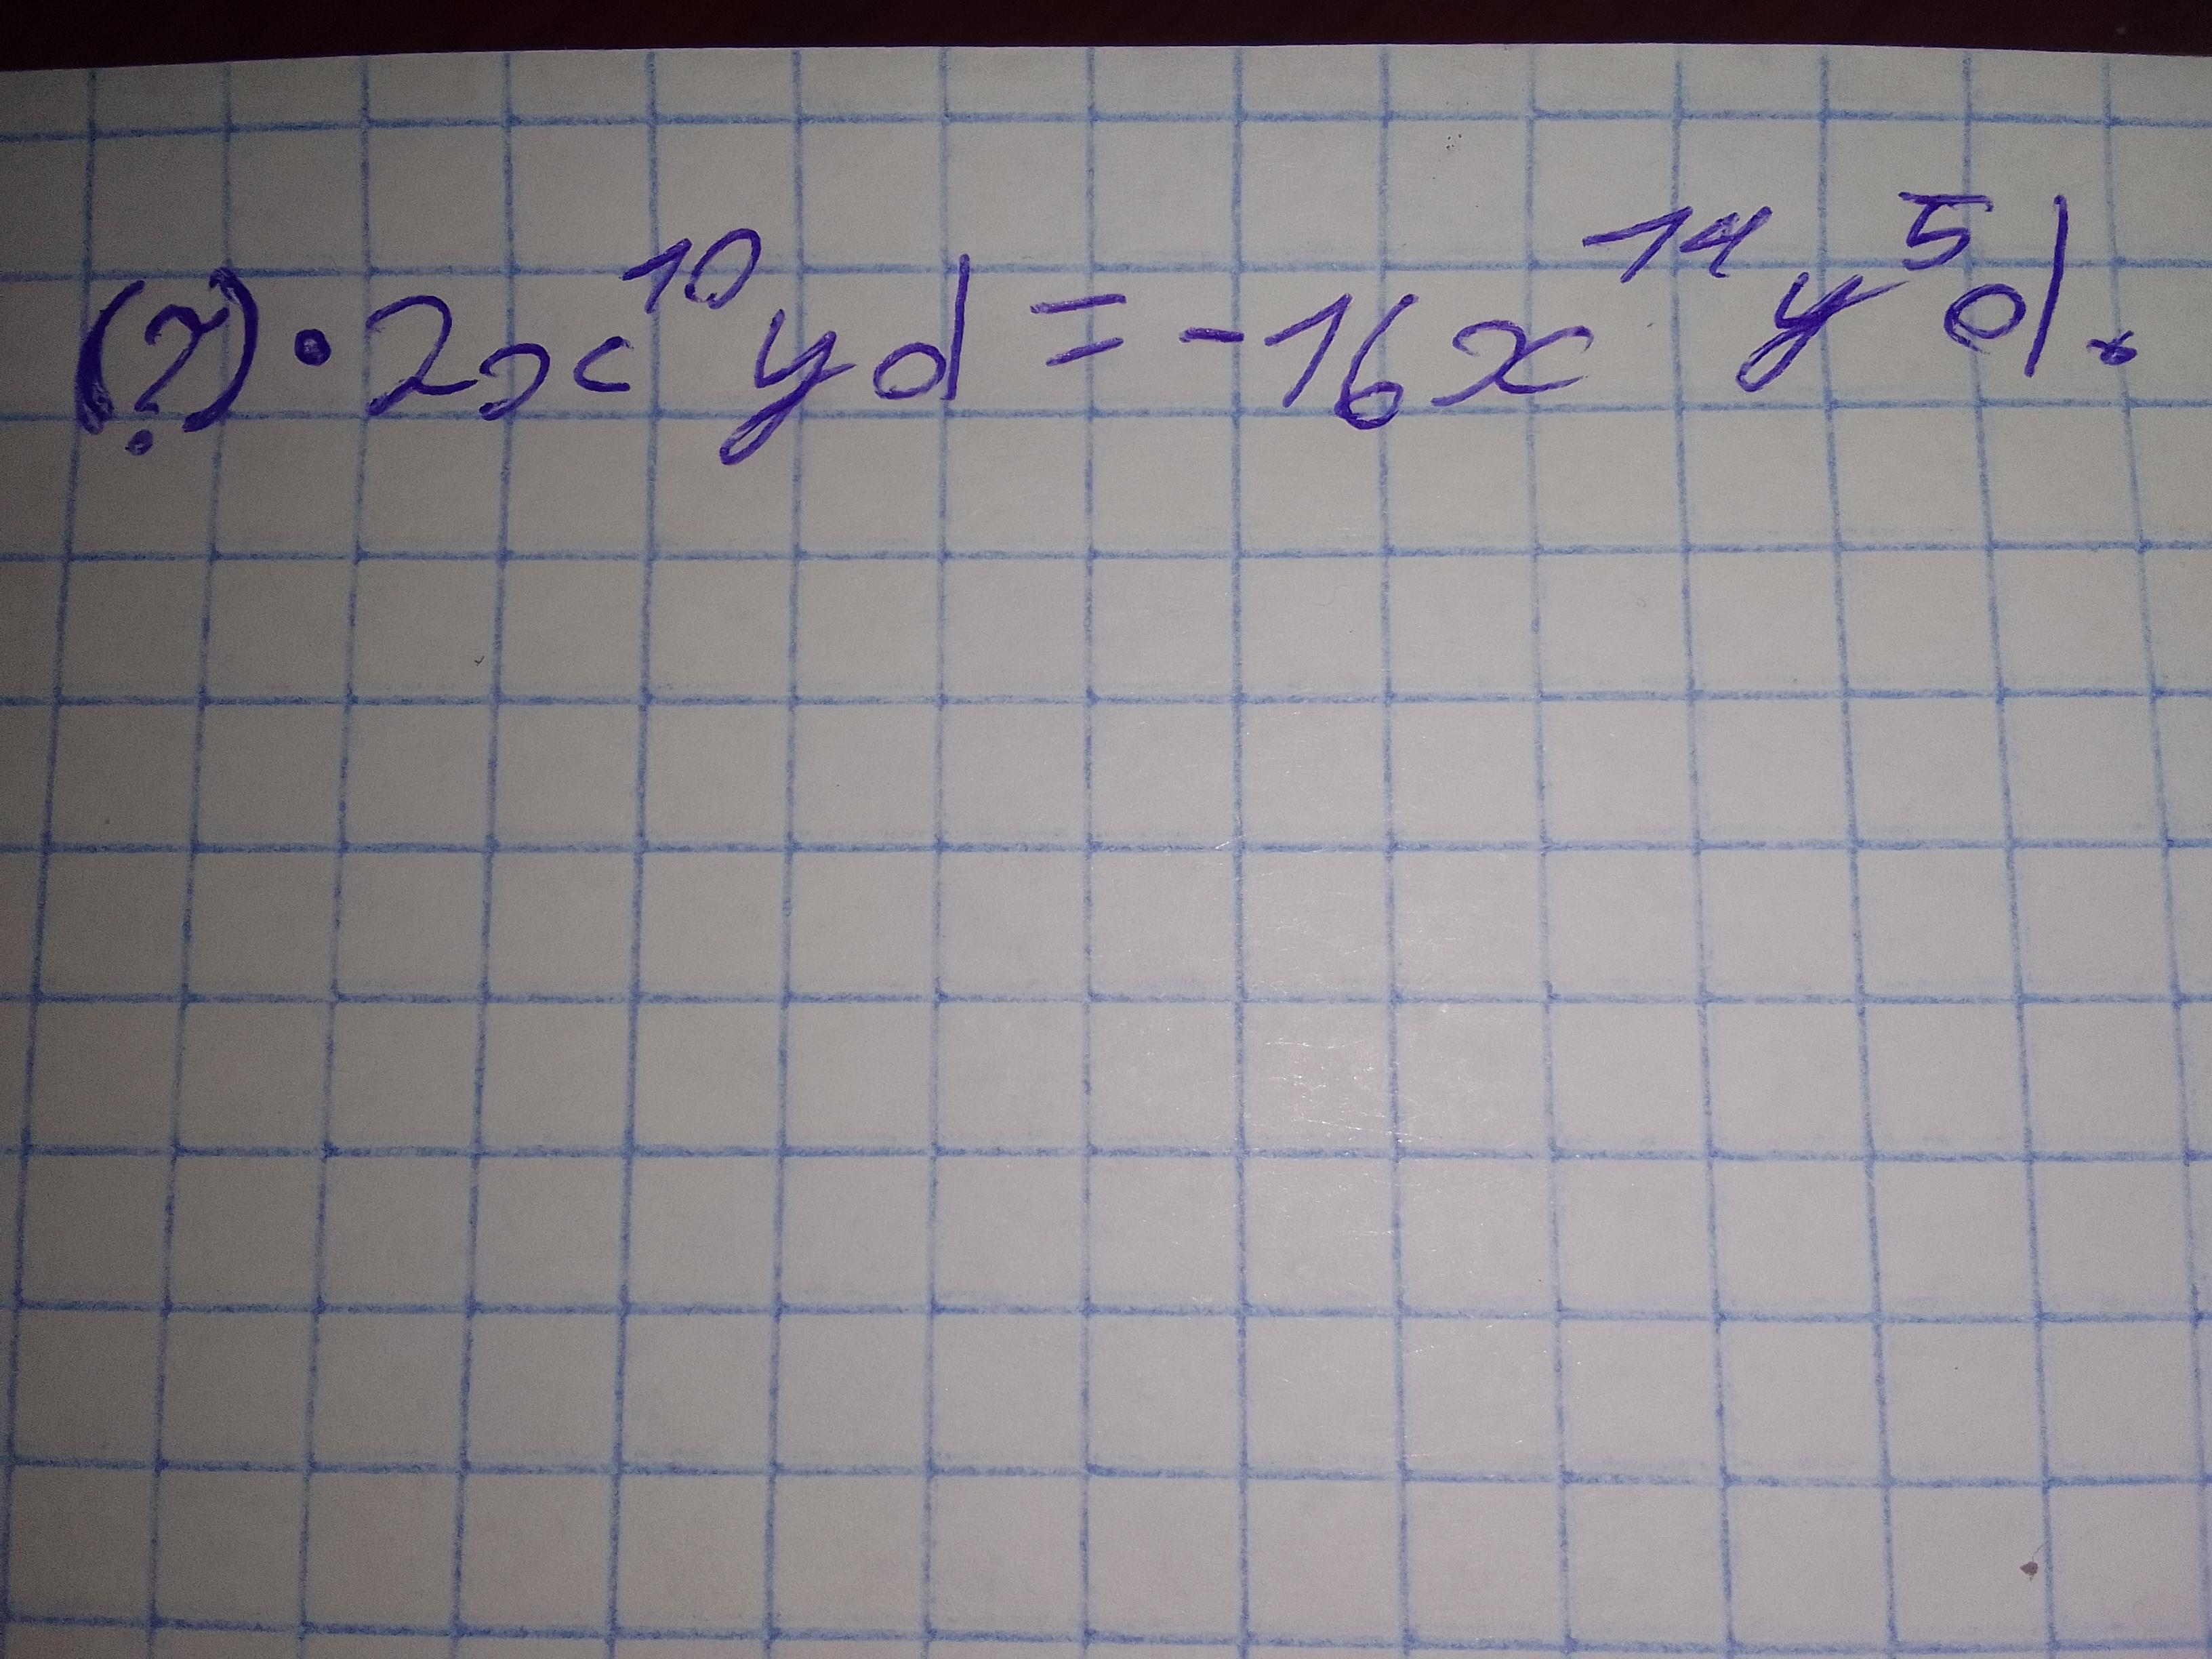 (?) · 2x¹⁰yd = -16x¹⁴y⁵d.